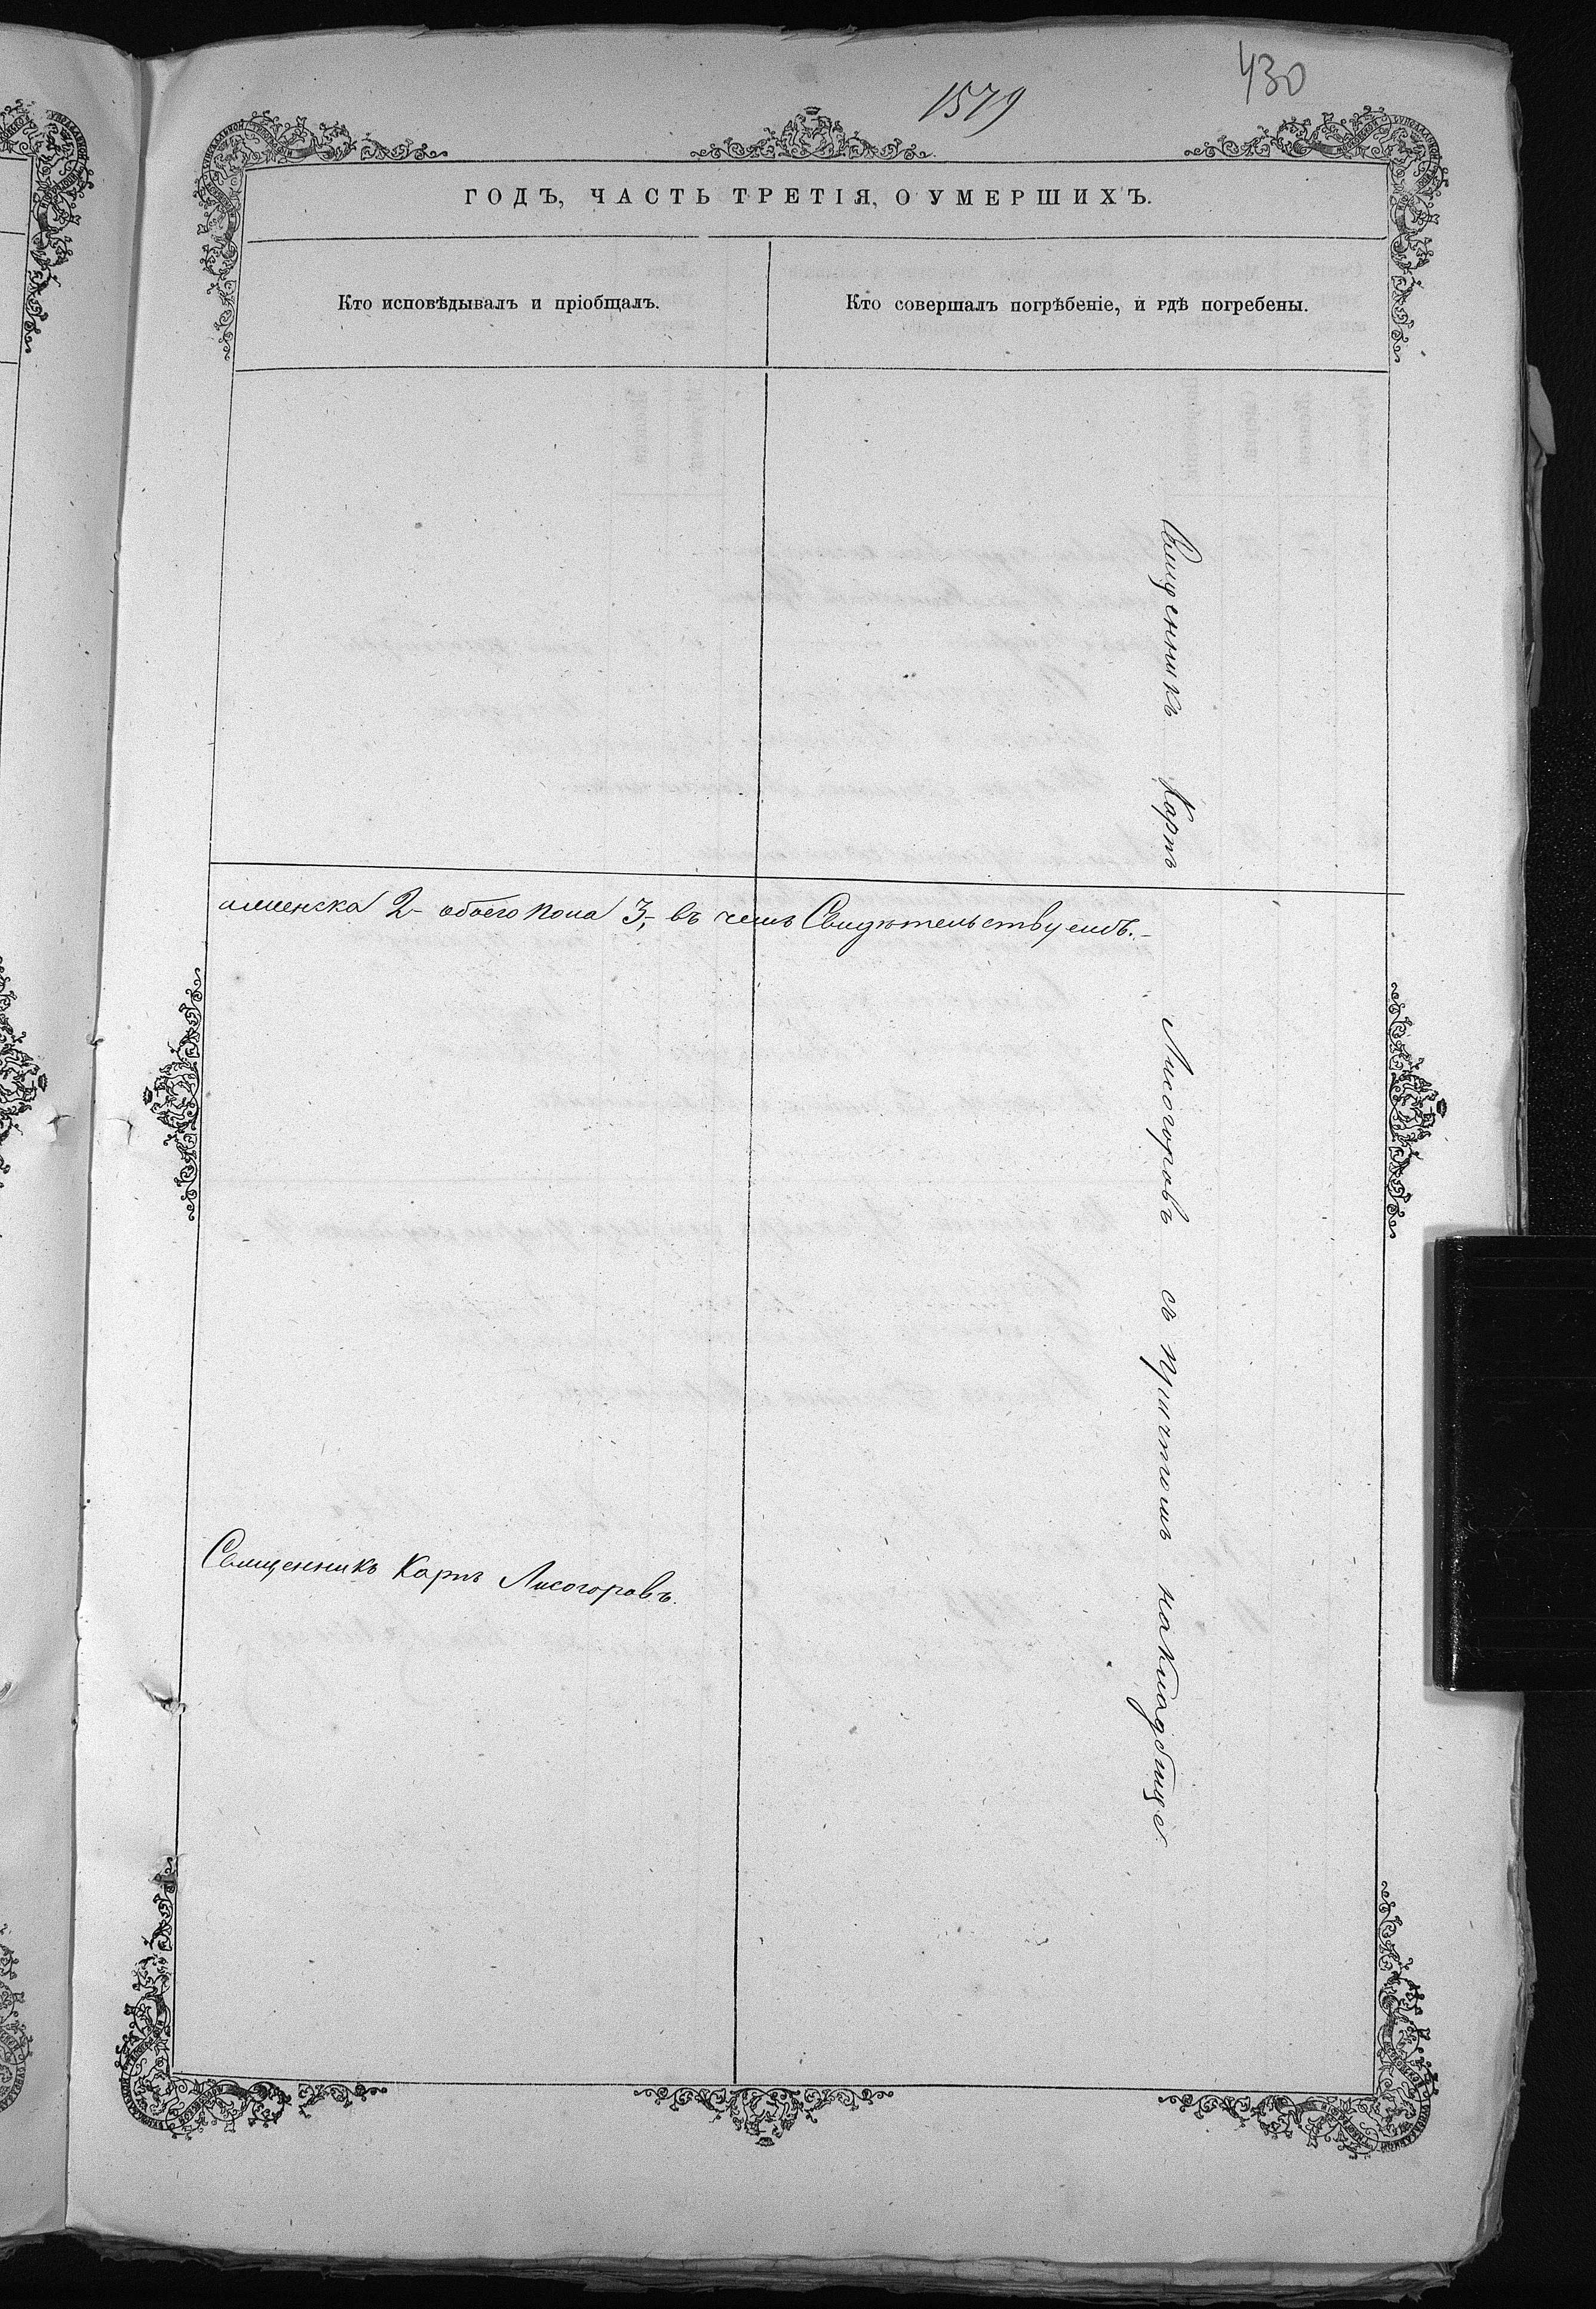 1579
430
ГОДЪ, ЧАСТЬ ТРЕТІЯ, О УМЕРШИХЪ.
Кто исповѣдывалъ и пріобщалъ.
Кто совершалъ погрѣбеніе, и гдѣ погребены.
Священникъ Карпъ Лисогоровъ съ причтомъ на кладбище
а женска 2- обоего пола 3,- въ чемъ Свидѣтельствуемъ.-
Священникъ Карпъ Лисогоровъ.